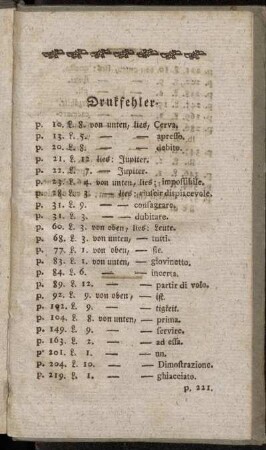 Drukfehler.
p. 10. L. 8. von unten, lies, Cerva.
p. 13. L. 5. — — apresso.
p. 20. L. 8. — — dabito.
p. 21. L. 12 lies: Jupiter.
p. 22. L. 7. — Jupiter.
p. 23. L. 4. von unten, lies: impossibile.
p. 28. L. 3. — lies: riuscir dispiacevole.
p. 31. L. 9. — — consagrare.
p. 31. L. 3. — — dubitare.
p. 60. L. 3. von oben, lies: Leute.
p. 68. L. 3. von unten, — tutti.
p. 77. L. 1. von oben, — Sie.
p. 83. L. 1. von unten, — giovinetto.
p. 84. L. 6. — — incerta.
p. 89. L. 12. — — partir di volo.
p. 92. L. 9. von oben, — ist.
p. 102. L. 9. — — tigkeit.
p. 104. L. 8. von unten, — prima.
p. 149. L. 9. — — servire.
p. 163. L. 2. — — ad essa.
p. 201. L. 1. — — un.
p. 204. L. 10. — — Dimostrazione.
p. 219. L. 1. — — ghiacciato.
p. 221.